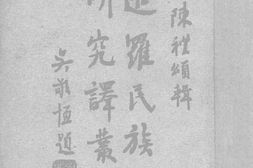 陳禮頌輯
暹羅民族
研究譯叢
吳敬恆題